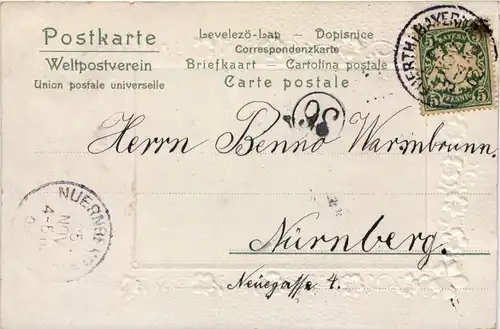 Postkarte
Weltpostverein
Union postale universelle
Levelező-Lap — Dopisnice
Correspondenzkarte
Briefkaart — Cartolina postale
Carte postale
FUERTH BAYERN
BAYERN
5 PFENNIG 5
Herrn Benno Warmbrunn.
NUERNB
NOV
Nürnberg.
Neuegasse 4.